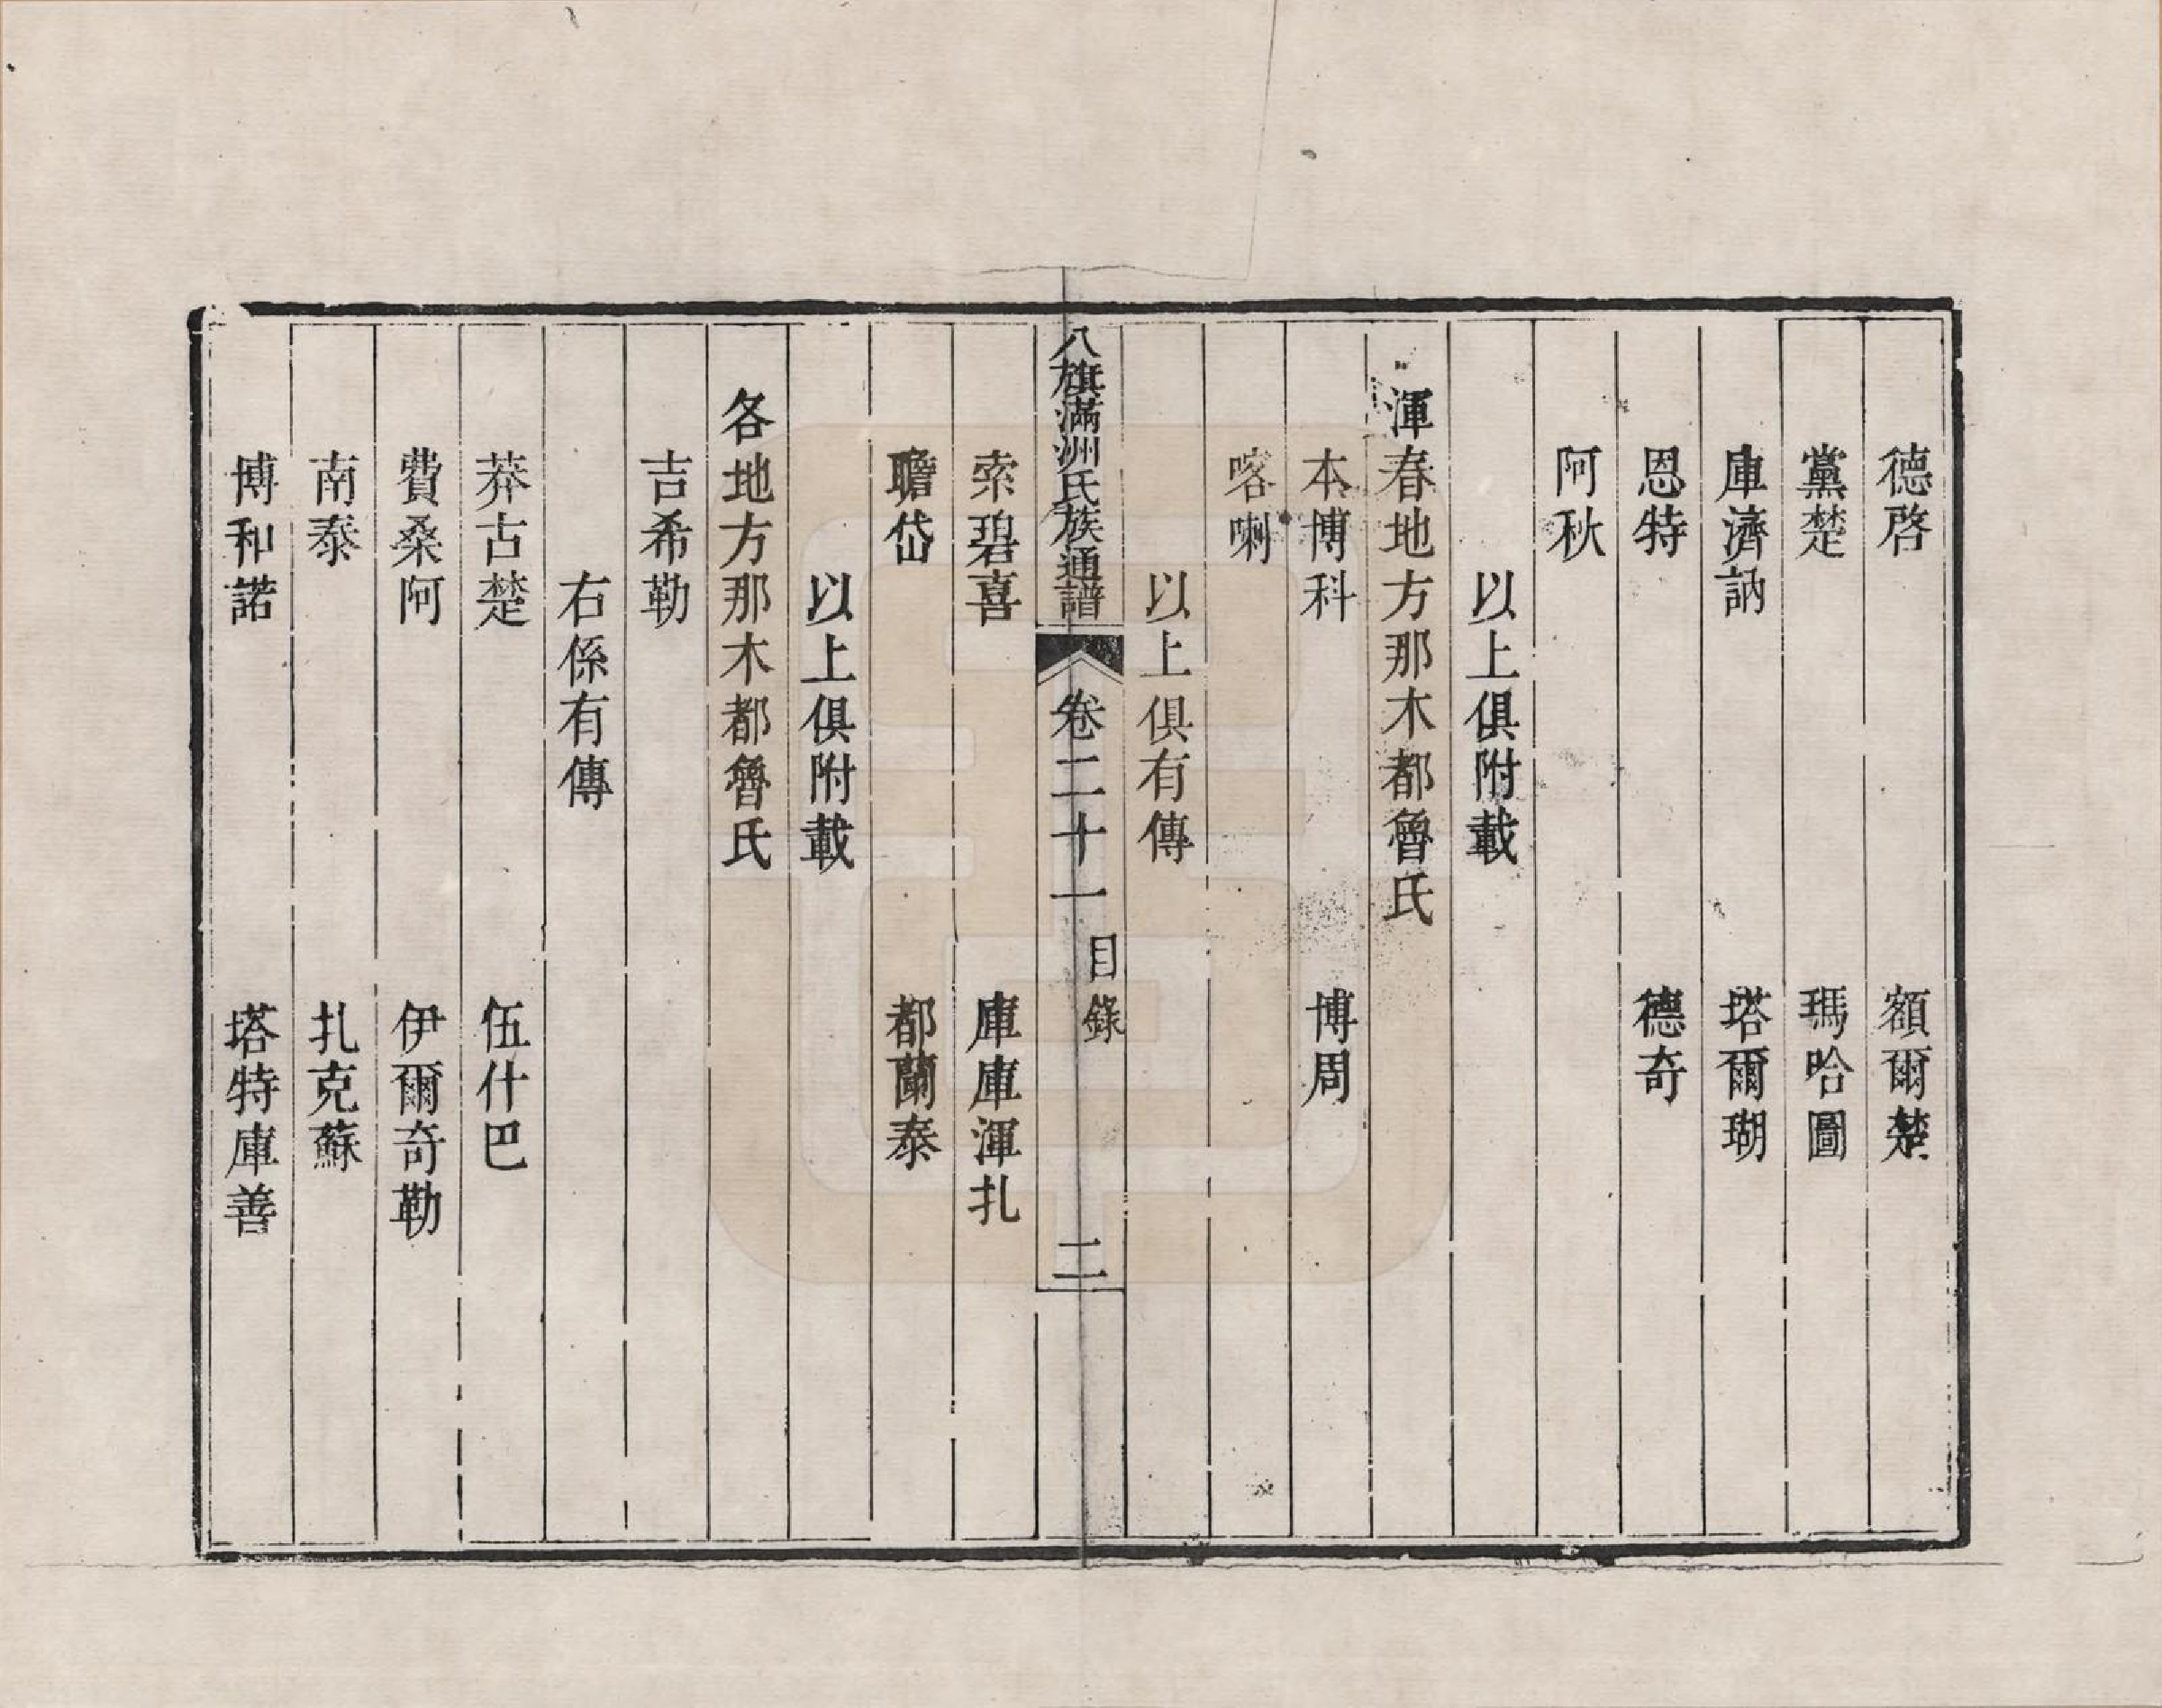 德啓　額爾楚
黨楚　瑪哈圖
庫濟訥　塔爾瑚
恩特　德奇
阿秋
以上俱附載
渾春地方那木都魯氏
本博科　博周
喀喇
以上俱有傳
八旗滿洲氏族通譜　卷二十一　目錄　二
索碧喜　庫庫渾扎
瞻岱　都蘭泰
以上俱附載
各地方那木都魯氏
吉希勒
右係有傳
莽古楚　伍什巴
費桑阿　伊爾奇勒
南泰　扎克蘇
博和諾　塔特庫善